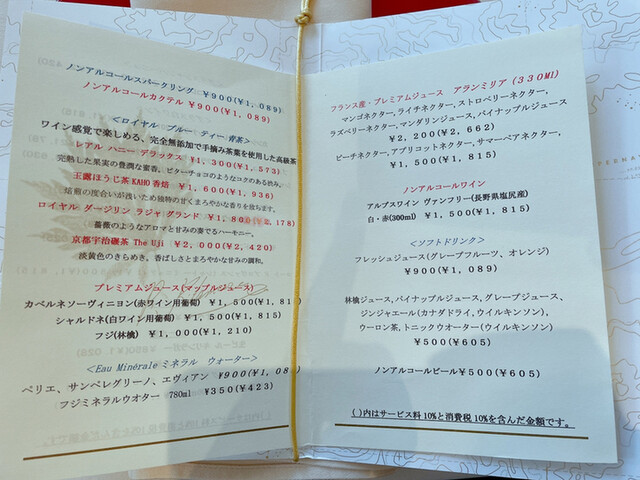 ノンアルコールスパークリング ¥900(¥1,089)
ノンアルコールカクテル ¥900(¥1,089)
<ロイヤル ブルー ティー 青茶>
ワイン感覚で楽しめる、完全無添加で手摘み茶葉を使用した高級茶
レアル ハニー デラックス ¥1,300(¥1,573)
完熟した果実の豊潤な蜜香。ビターチョコのようなコクのある渋み。
玉露ほうじ茶 KAHO 香焙 ¥1,600(¥1,936)
焙煎の度合いが浅いため独特の甘くまろやかな香りを放ちます。
ロイヤル ダージリン ラジャ グランド ¥1,80 178)
薔薇のようなアロマと甘みの奏でるハーモニー。
京都宇治碾茶 The Uji ¥2,000(¥2,420)
淡黄色のきらめき。香ばしさとまろやかな甘みの調和。
プレミアムジュース(マップルジュース)
カベルネソーヴィニヨン(赤ワイン用葡萄) ¥1,500(¥1,815
シャルドネ(白ワイン用葡萄) ¥1,500(¥1,81
フジ(林檎) ¥1,000(¥1,210)
<Eau Minérale ミネラル ウォーター>
ペリエ、サンペレグリーノ、エヴィアン ¥900(¥1,089
フジミネラルウオター 780ml ¥350(¥423)
フランス産・プレミアムジュース アランミリア(330Ml)
マンゴネクター,ライチネクター,ストロベリーネクター,
ラズベリーネクター,マンダリンジュース,パイナップルジュース
¥2,200(¥2,662)
ピーチネクター,アプリコットネクター,サマーペアネクター,
¥1,500(¥1,815)
ノンアルコールワイン
アルプスワイン ヴァンフリー(長野県塩尻産)
白・赤(300ml) ¥1,500(¥1,815)
<ソフトドリンク>
フレッシュジュース(グレープフルーツ、オレンジ)
¥900(¥1,089)
林檎ジュース,パイナップルジュース,グレープジュース、
ジンジャエール(カナダドライ,ウイルキンソン),
ウーロン茶,トニックウオーター(ウイルキンソン)
¥500(¥605)
ノンアルコールビール¥500(¥605)
( )内はサービス料10%と消費税10%を含んだ金額です。